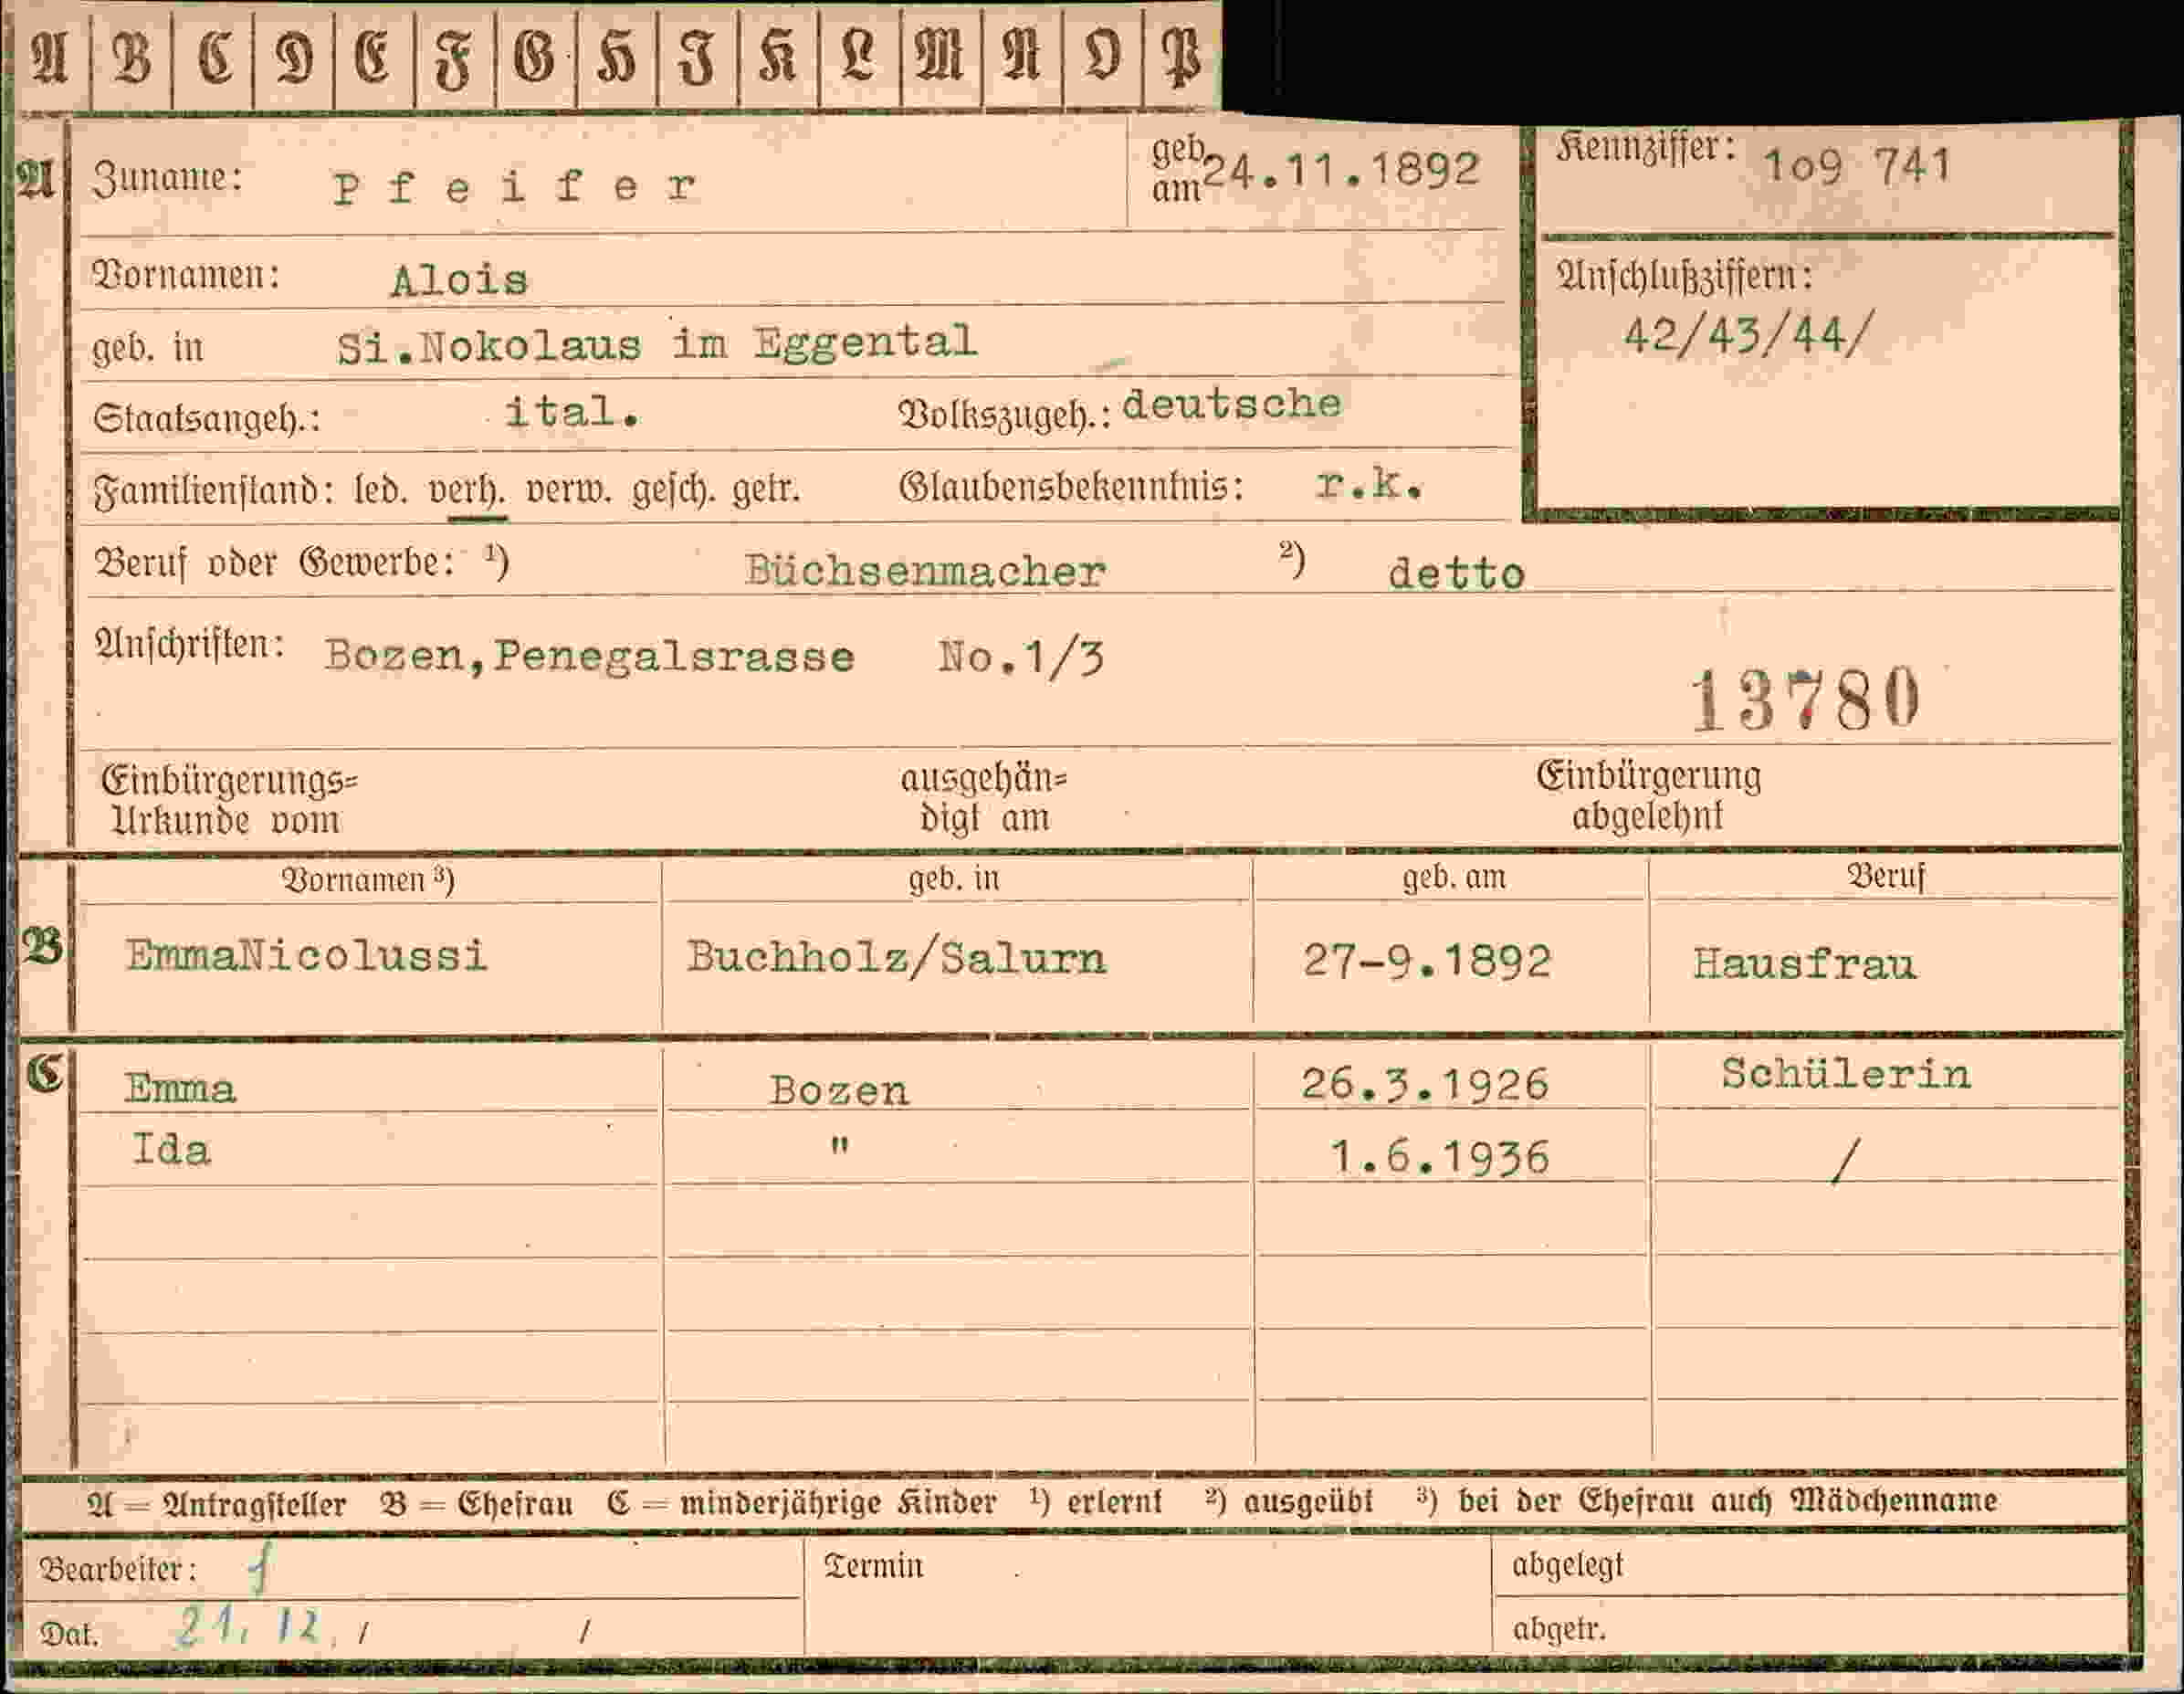 A B C D E F G H I K L M N O P
A Zuname: Pfeifer geb. am 24.11.1892 Kennziffer: 1o9 741
Vornamen: Alois Anschlußziffern:
geb. in Si.Nokolaus im Eggental 42/43/44/
Staatsangeh.: ital. Volkszugeh.: deutsche
Familienstand: led. verh. verw. gesch. getr. Glaubensbekenntnis: r.k.
Beruf oder Gewerbe: 1) Büchsenmacher 2) detto
Anschriften: Bozen,Penegalsrasse No.1/3
13780
Einbürgerungs= ausgehän= Einbürgerung
Urkunde vom digt am abgelehnt
Vornamen 3) geb. in geb. am Beruf
B EmmaNicolussi Buchholz/Salurn 27-9.1892 Hausfrau
C Emma Bozen 26.3.1926 Schülerin
Ida " 1.6.1936 /
A = Antragsteller B = Ehefrau C = minderjährige Kinder 1) erlernt 2) ausgeübt 3) bei der Ehefrau auch Mädchenname
Bearbeiter: f Termin abgelegt
Dat. 21. 12. / / abgetr.